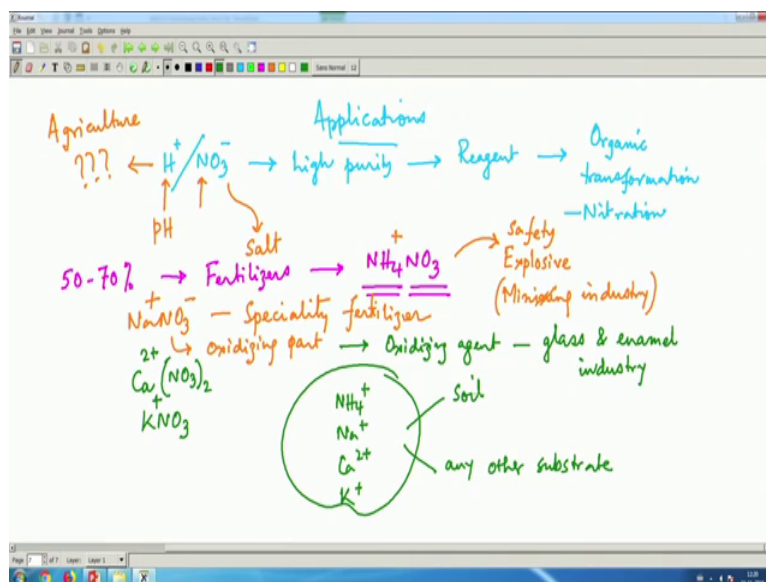 Journal
File Edit View Journal Tools Options Help
Sans Normal 12
Agriculture
Applications
??? ← H⁺/NO₃⁻ → high purity → Reagent → Organic
transformation
— Nitration
pH
Salt
50-70% → Fertilizers → NH₄⁺NO₃
Safety
Explosive
(Minising industry)
Na⁺NO₃⁻ — Speciality fertilizer
↳ oxidizing part → Oxidizing agent — glass & enamel
industry
Ca²⁺(NO₃)₂
K⁺NO₃
NH₄⁺
Na⁺
Ca²⁺
K⁺
Soil
any other substrate
Page 7 of 7 Layer: Layer 1
12:20